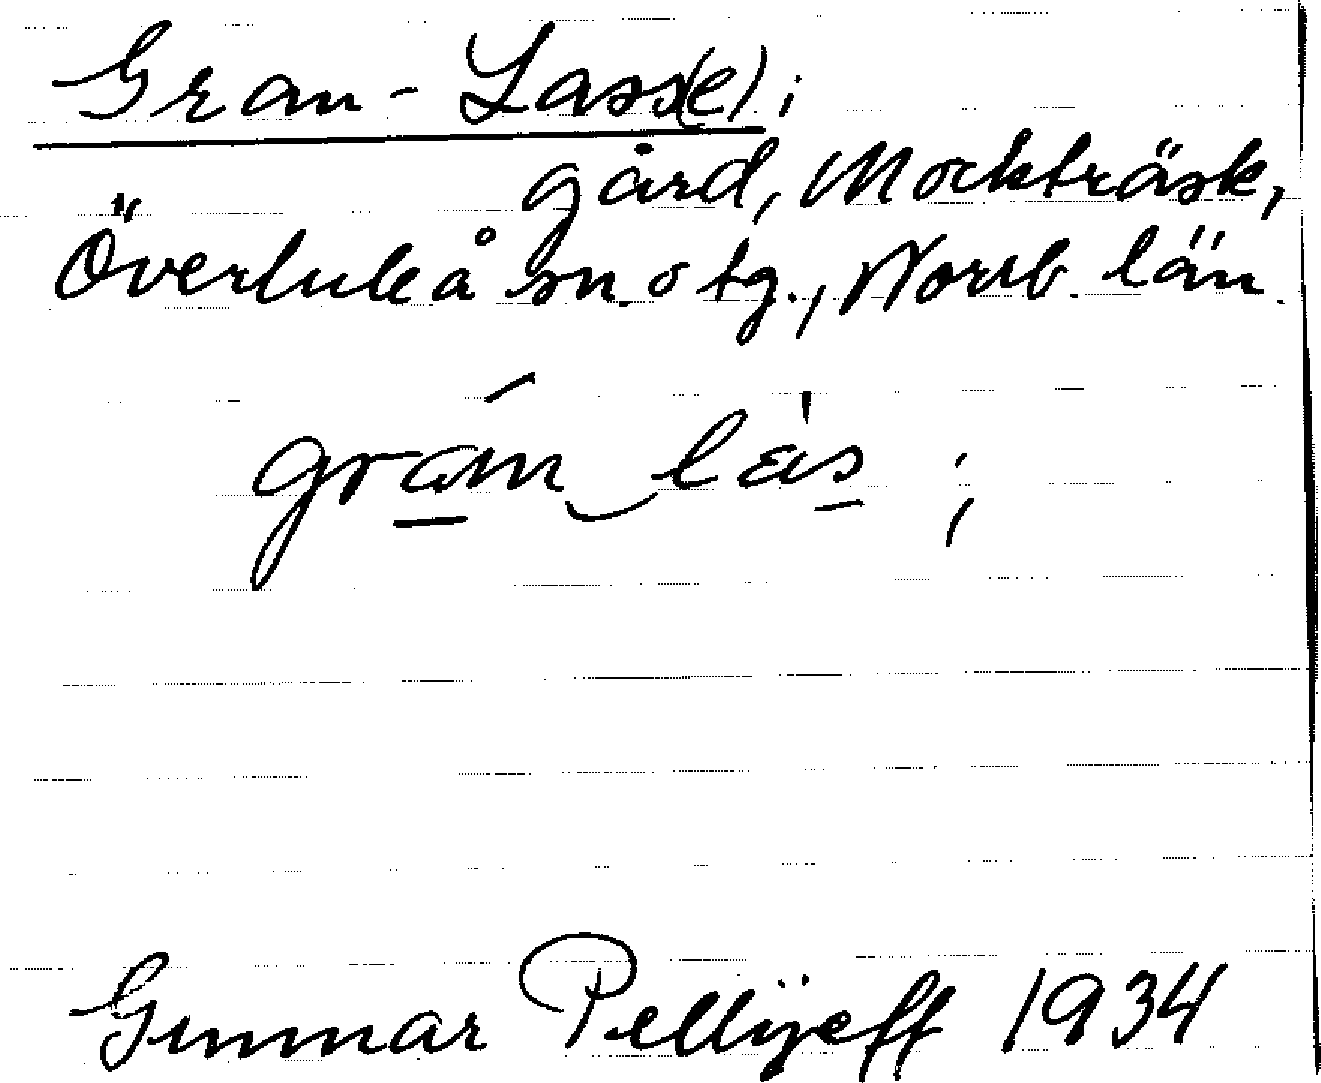 Gran-Lass(e);
gård, Mockträsk,
Överluleå sn o tg., Norrb. län.
gra̲m‿läs̲ ;
Gunnar Pellijeff 1934